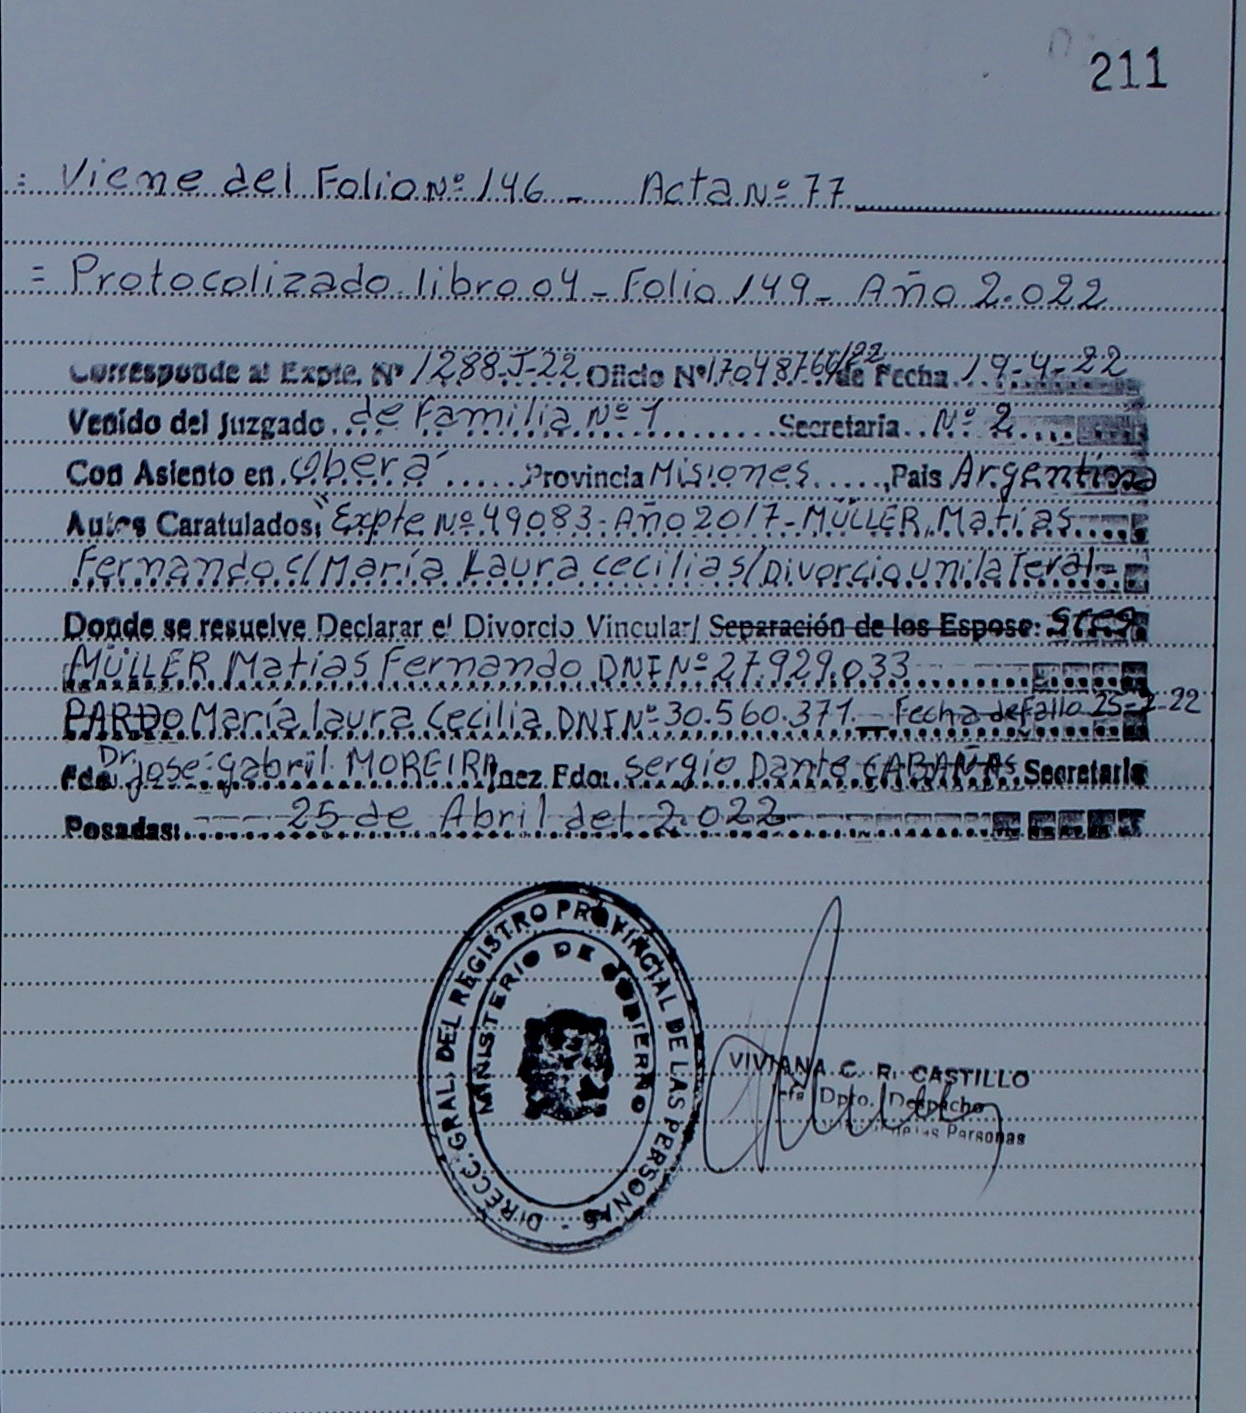 211
= Viene del Folio Nº 146 - Acta Nº 77
= Protocolizado libro 04 - Folio 149 - Año 2.022
Corresponde al Expte. Nº 1288-J-22 Oficio Nº 1704876 /22 de Fecha 19-4-22
Venido del Juzgado de Familia Nº 1 Secretaria Nº 2
Con Asiento en Oberá Provincia Misiones, País Argentina
Autos Caratulados: "Expte Nº 49083-Año 2017-MÜLLER, Matías
Fernando c/ María Laura Cecilia s/ Divorcio unilateral-
Donde se resuelve Declarar el Divorcio Vincular/ Separación de los Esposo: Sres
MÜLLER Matías Fernando DNI Nº 27.929.033
PARDO María laura Cecilia DNI Nº 30.560.371. Fecha de Fallo 25-2-22
Fdo: Dr. José Gabriel MOREIRA Juez Fdo: Sergio Dante CABAÑAS Secretario
Posadas: 25 de Abril del 2.022
DIRECC. GRAL. DEL REGISTRO PROVINCIAL DE LAS PERSONAS
MINISTERIO DE GOBIERNO
VIVIANA C. R. CASTILLO
Dpto. Despacho
de las Personas